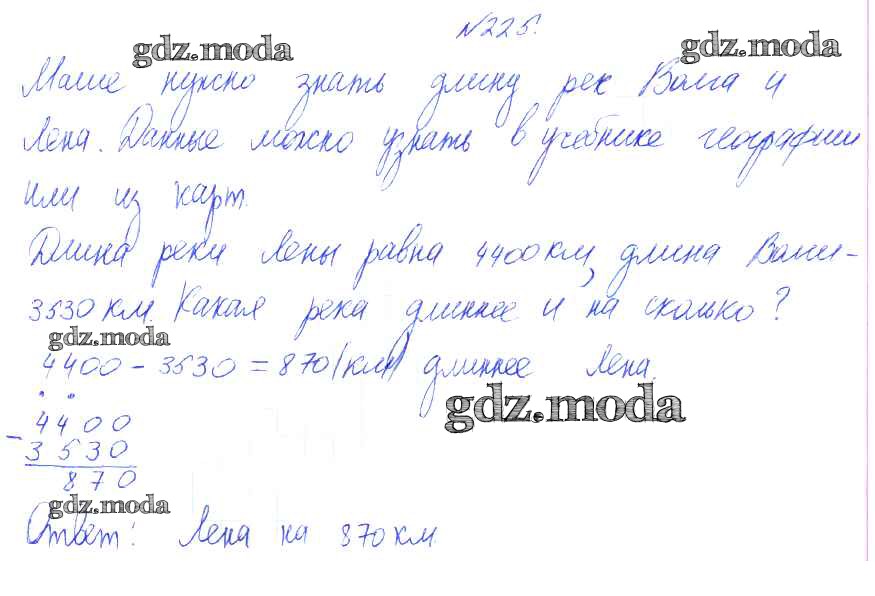 №225.
gdz.moda gdz.moda
Маше нужно знать длину рек Волга и
Лена. Данные можно узнать в учебнике географии
или из карт.
Длина реки Лены равна 4400 км, длина Волги -
3530 км. Какая река длиннее и на сколько?
gdz.moda
4400 - 3530 = 870 (км) длиннее Лена.
gdz.moda
- 4400
3530
870
gdz.moda
Ответ: Лена на 870 км